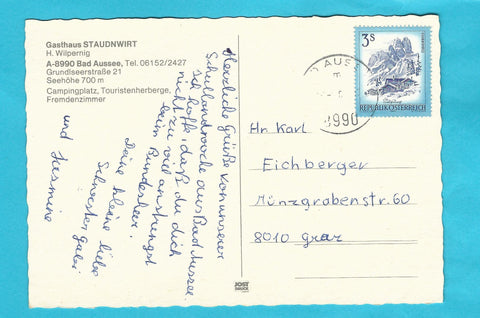 Gasthaus STAUDNWIRT
H. Wilpernig
A-8990 Bad Aussee, Tel. 06152/2427
Grundlseerstraße 21
Seehöhe 700 m
Campingplatz, Touristenherberge,
Fremdenzimmer
Herzliche Grüße von unserer
Schullandwoche aus Bad Aussee.
Ich hoffe, daß du dich
nicht zu viel anstrengst
beim Bundesheer.
Deine kleine liebe
Schwester Gabi
und Jasmine
3 S
REPUBLIK ÖSTERREICH
8990
Hr. Karl
Eichberger
Münzgrabenstr. 60
8010 Graz
JOST
DRUCK